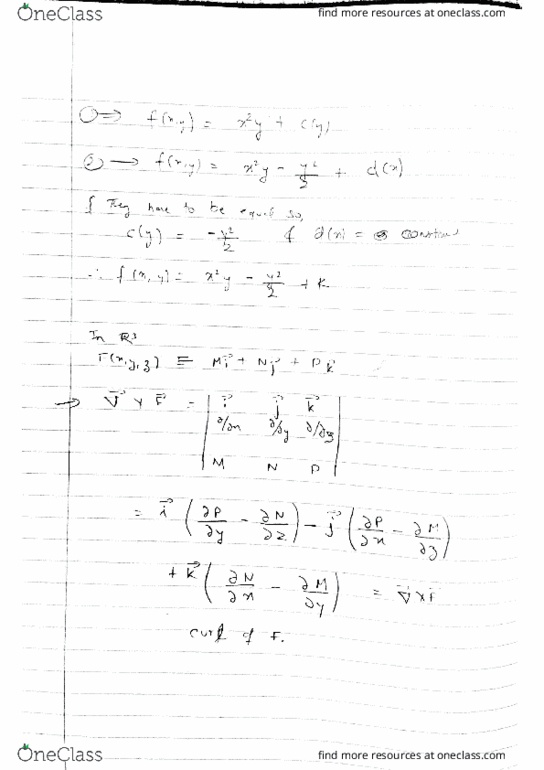 OneClass
find more resources at oneclass.com
① ⇒ f(x,y) = x²y + c(y)
② → f(x,y) = x²y - y²/2 + d(x)
They have to be equal so,
c(y) = -y²/2 & d(x) = constant
∴ f(x,y) = x²y - y²/2 + k
In R³
F(x,y,z) ≡ Mi⃗ + Nj⃗ + Pk⃗
→ ∇⃗ × F⃗ = | i⃗ j⃗ k⃗ |
∂/∂x ∂/∂y ∂/∂z
M N P
= i⃗ (∂P/∂y - ∂N/∂z) - j⃗ (∂P/∂x - ∂M/∂z)
+ k⃗ (∂N/∂x - ∂M/∂y) = ∇⃗ × F
curl of F.
OneClass
find more resources at oneclass.com